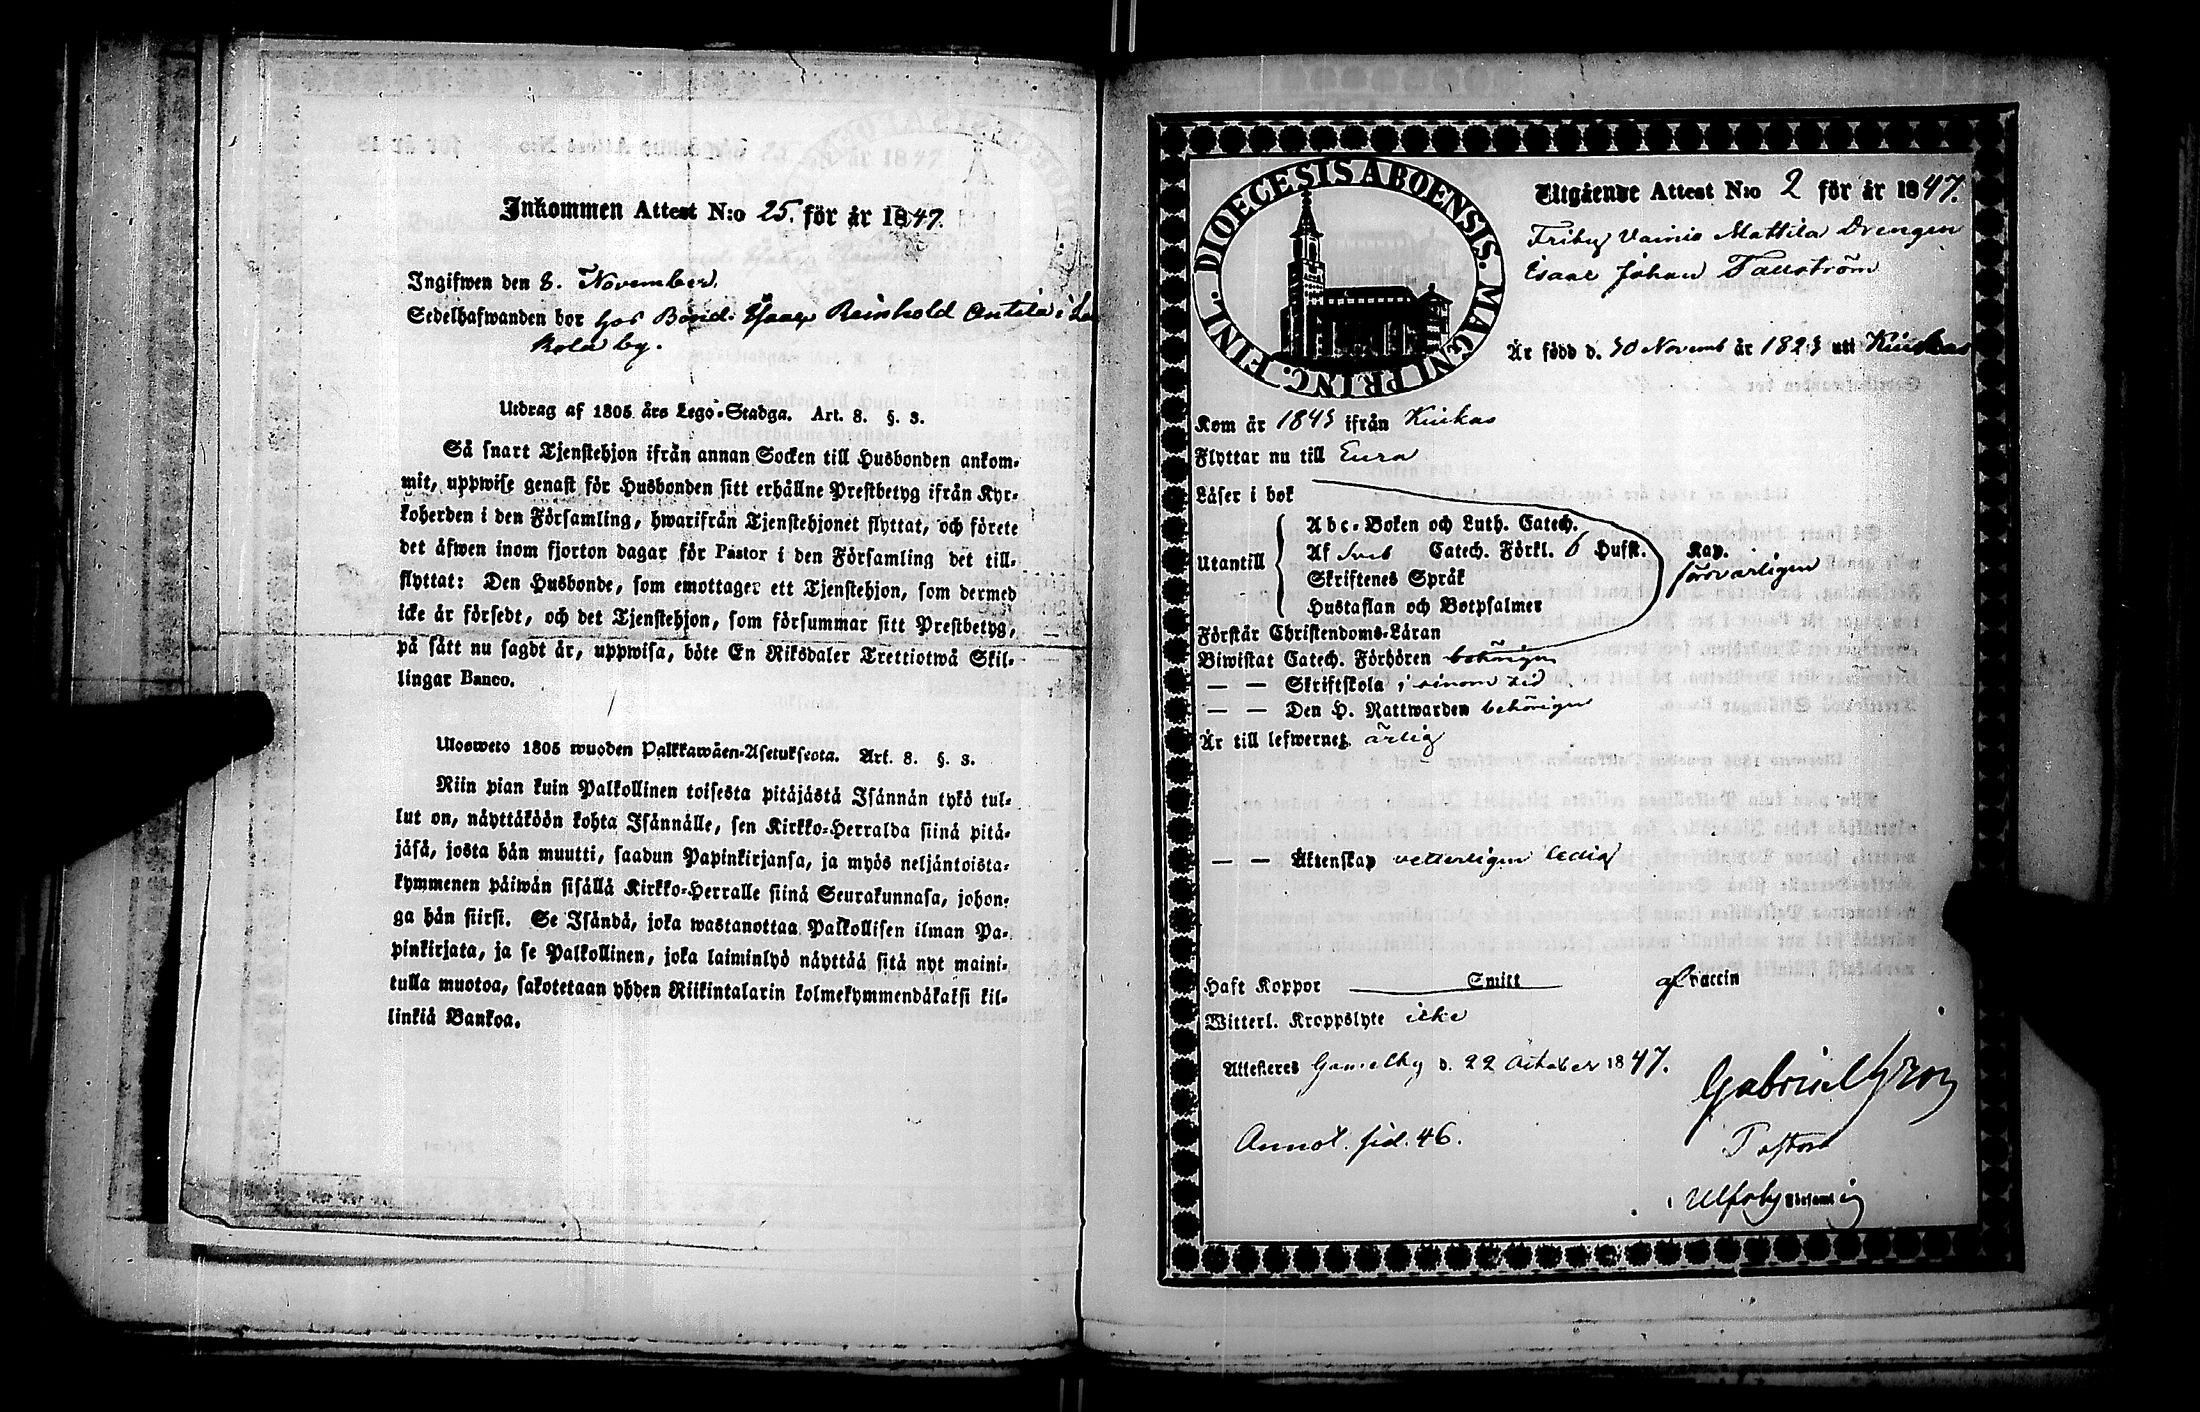 Inkommen Attest N:o 25. för år 1847.
Ingifwen den 8. November.
Sedelhafwanden bor hos Bond. Isaac Reinhold Antila i
by.
Utdrag af 1805 års Lego-Stadga. Art. 8. §. 3.
Så snart Tjenstehjon ifrån annan Socken till Husbonden ankom-
mit, uppwise genast för Husbonden sitt erhållne Prestbetyg ifrån Kyr-
koherden i den Församling, hwarifrån Tjenstehjonet flyttat, och förete
det äfwen inom fjorton dagar för Pastor i den Församling det till-
flyttat: Den Husbonde, som emottager ett Tjenstehjon, som dermed
icke är försedt, och det Tjenstehjon, som försummar sitt Prestbetyg,
på sätt nu sagdt är, uppwisa, böte En Riksdaler Trettiotwå Skil-
lingar Banco.
Ulosweto 1805 wuoden Palkkawäen-Asetuksesta. Art. 8. §. 3.
Niin pian kuin Palkollinen toisesta pitäjästä Isännän tykö tul-
lut on, näyttäköön kohta Isännälle, sen Kirkko-Herralda siinä pitä-
jäsä, josta hän muutti, saadun Papinkirjansa, ja myös neljäntoista-
kymmenen päiwän sisällä Kirkko-Herralle siinä Seurakunnasa, johon-
ga hän siirsi. Se Isändä, joka wastanottaa Palkollisen ilman Pa-
pinkirjata, ja se Palkollinen, joka laiminlyö näyttää sitä nyt maini-
tulla muotoa, sakotetaan yhden Riikintalarin kolmekymmendäkaksi kil-
linkiä Bankoa.
DIOECESIS ABOENSIS. MAGNI PRINC. FINL.
Utgående Attest N:o 2 för år 1847.
Friby Vainio Mattila Drengen
Isaac Johan Tallström
Är född d. 30 Novemb år 1823 uti Kiukas
Kom år 1843 ifrån Kiukas
Flyttar nu till Eura
Läser i bok
Utantill
Abc-Boken och Luth. Catech.
Af Sveb Catech. Förkl. 6 Hufst. Kap.
försvarligen
Skriftenes Språk
Hustaflan och Botpsalmer
Förstår Christendoms-Läran
Biwistat Catech. Förhören behörigen
— — Skriftskola i sinom tid
— — Den H. Nattwarden behörigen
Är till lefwernet ärlig
— — Äktenskap vetterligen ledig
Haft Koppor Smitt af Vaccin
Witterl. Kroppslyte icke
Attesteres Gamelby d. 22 October 1847.
Gabriel
Annot. sid. 46. Pastor
i Ulfsby Församling